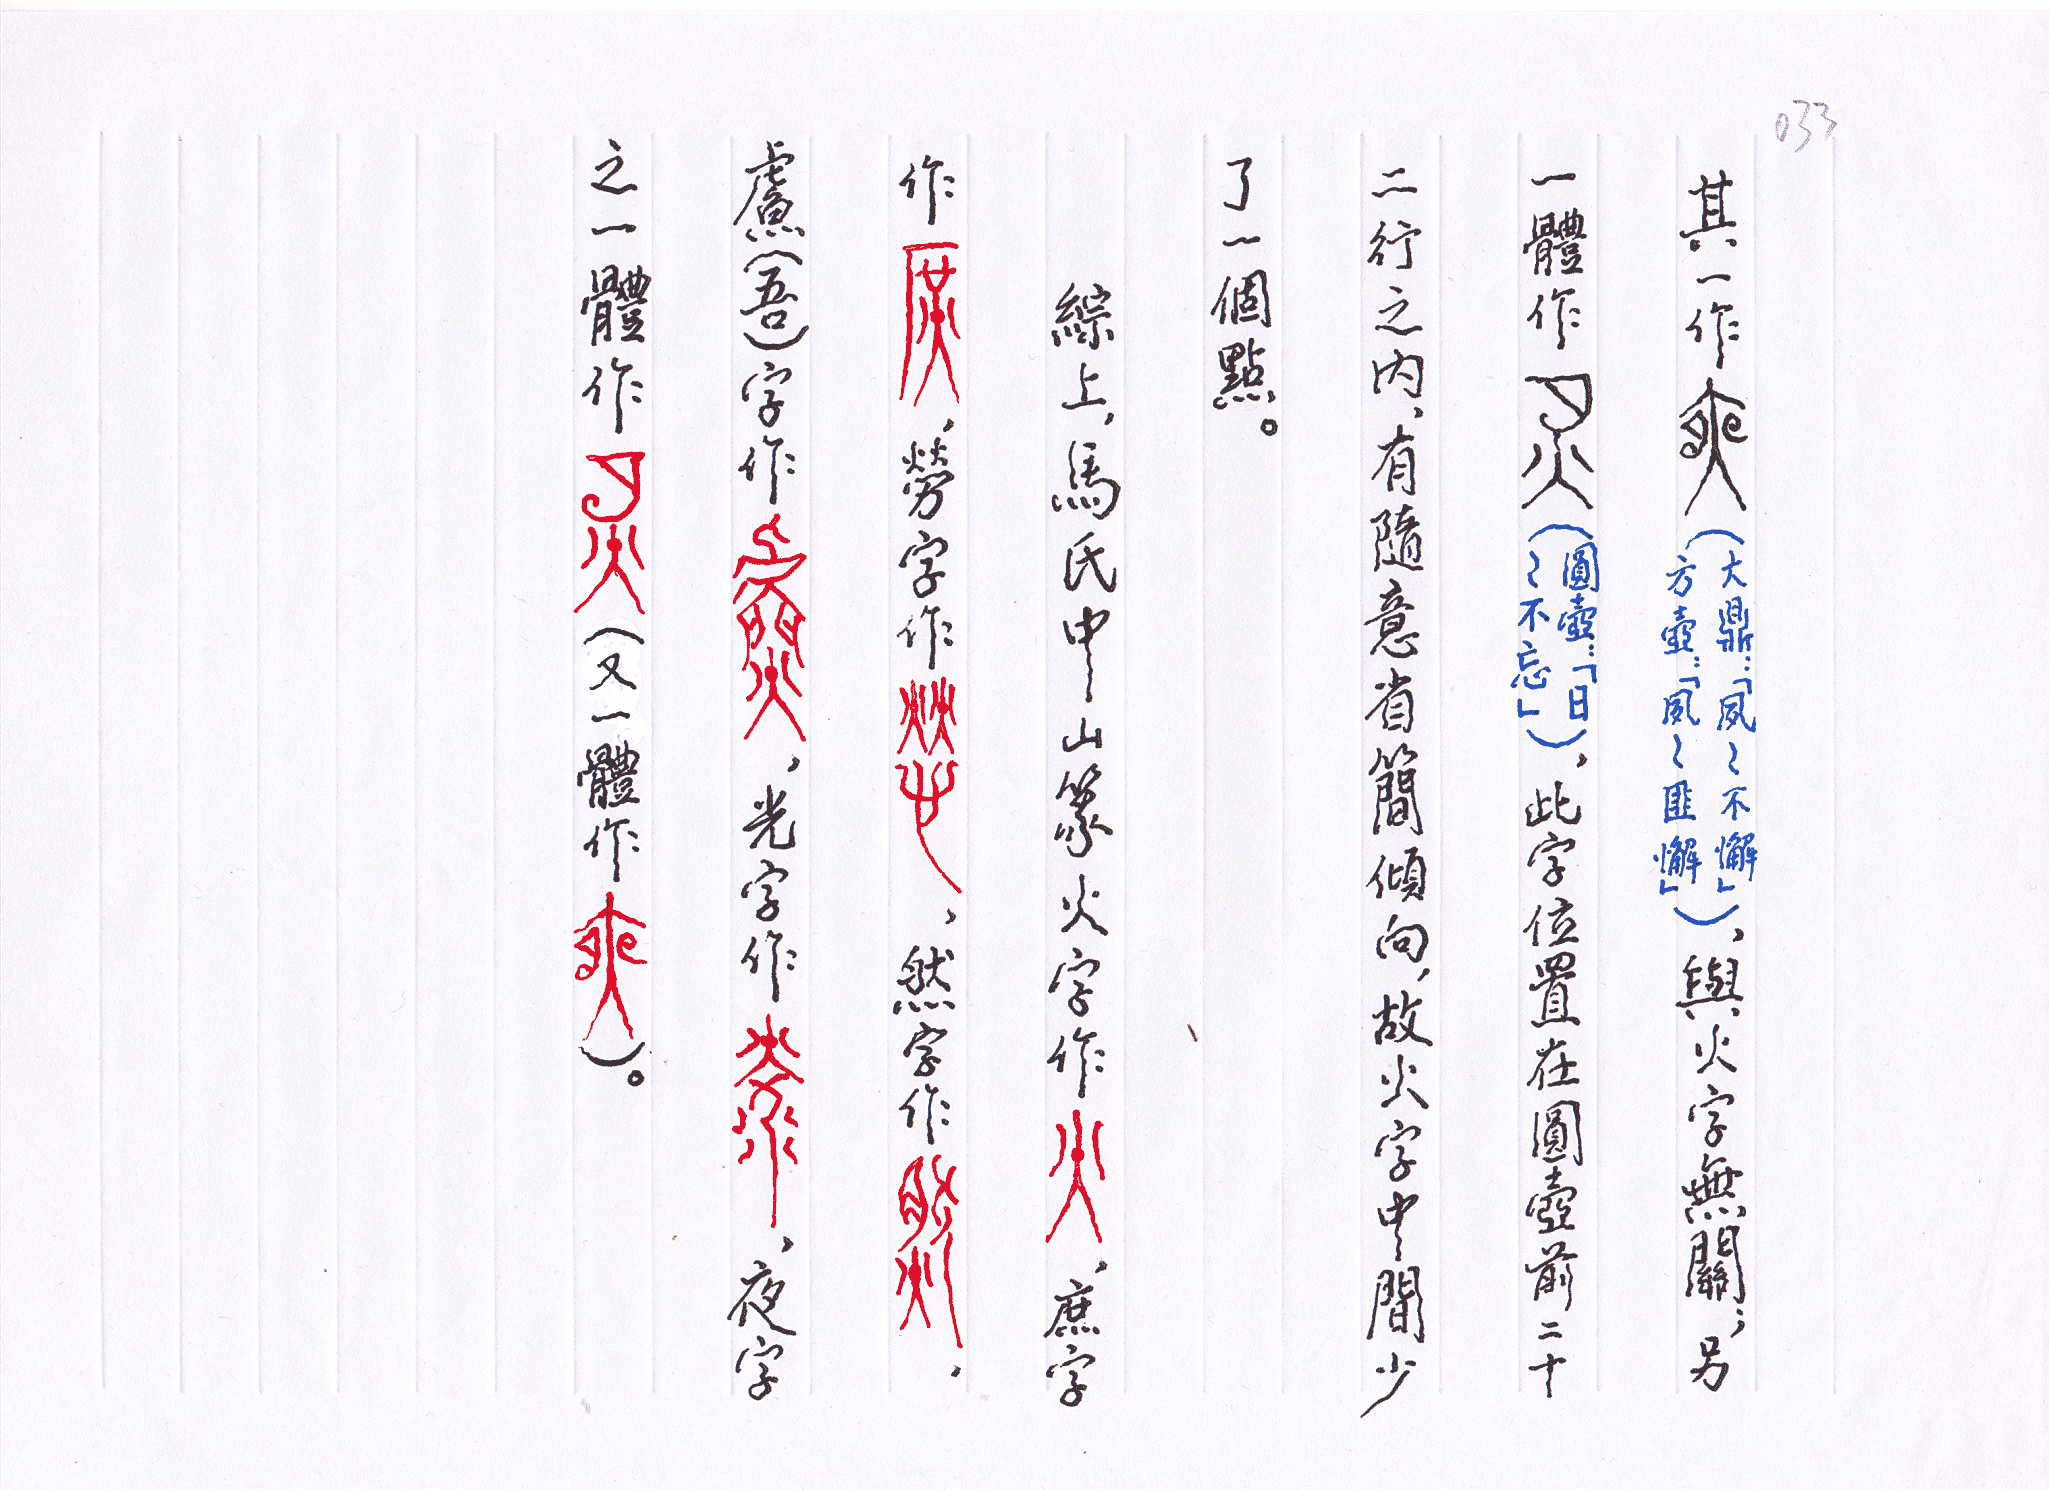 033
其一作（大鼎：「夙〻不懈」方壺：「夙〻匪懈」），與火字無關；另
一體作（圓壺：「日〻不忘」），此字位置在圓壺前二十
二行之內，有隨意省簡傾向，故火字中間少
了一個點。
綜上，馬氏中山篆火字作，庶字
作，勞字作，然字作，
䖒（吾）字作，光字作，夜字
之一體作（又一體作）。